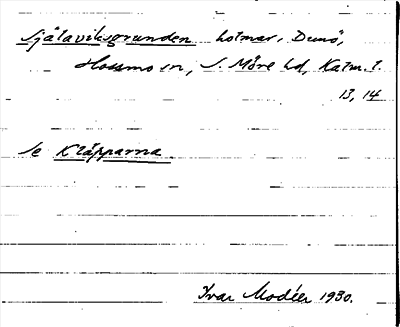 Själaviksgrunden Lotmar, Dunö,
Hossmo sn, S. Möre hd, Kalm. l.
13, 14
Se Kläpparna
Ivar Modéer 1930.